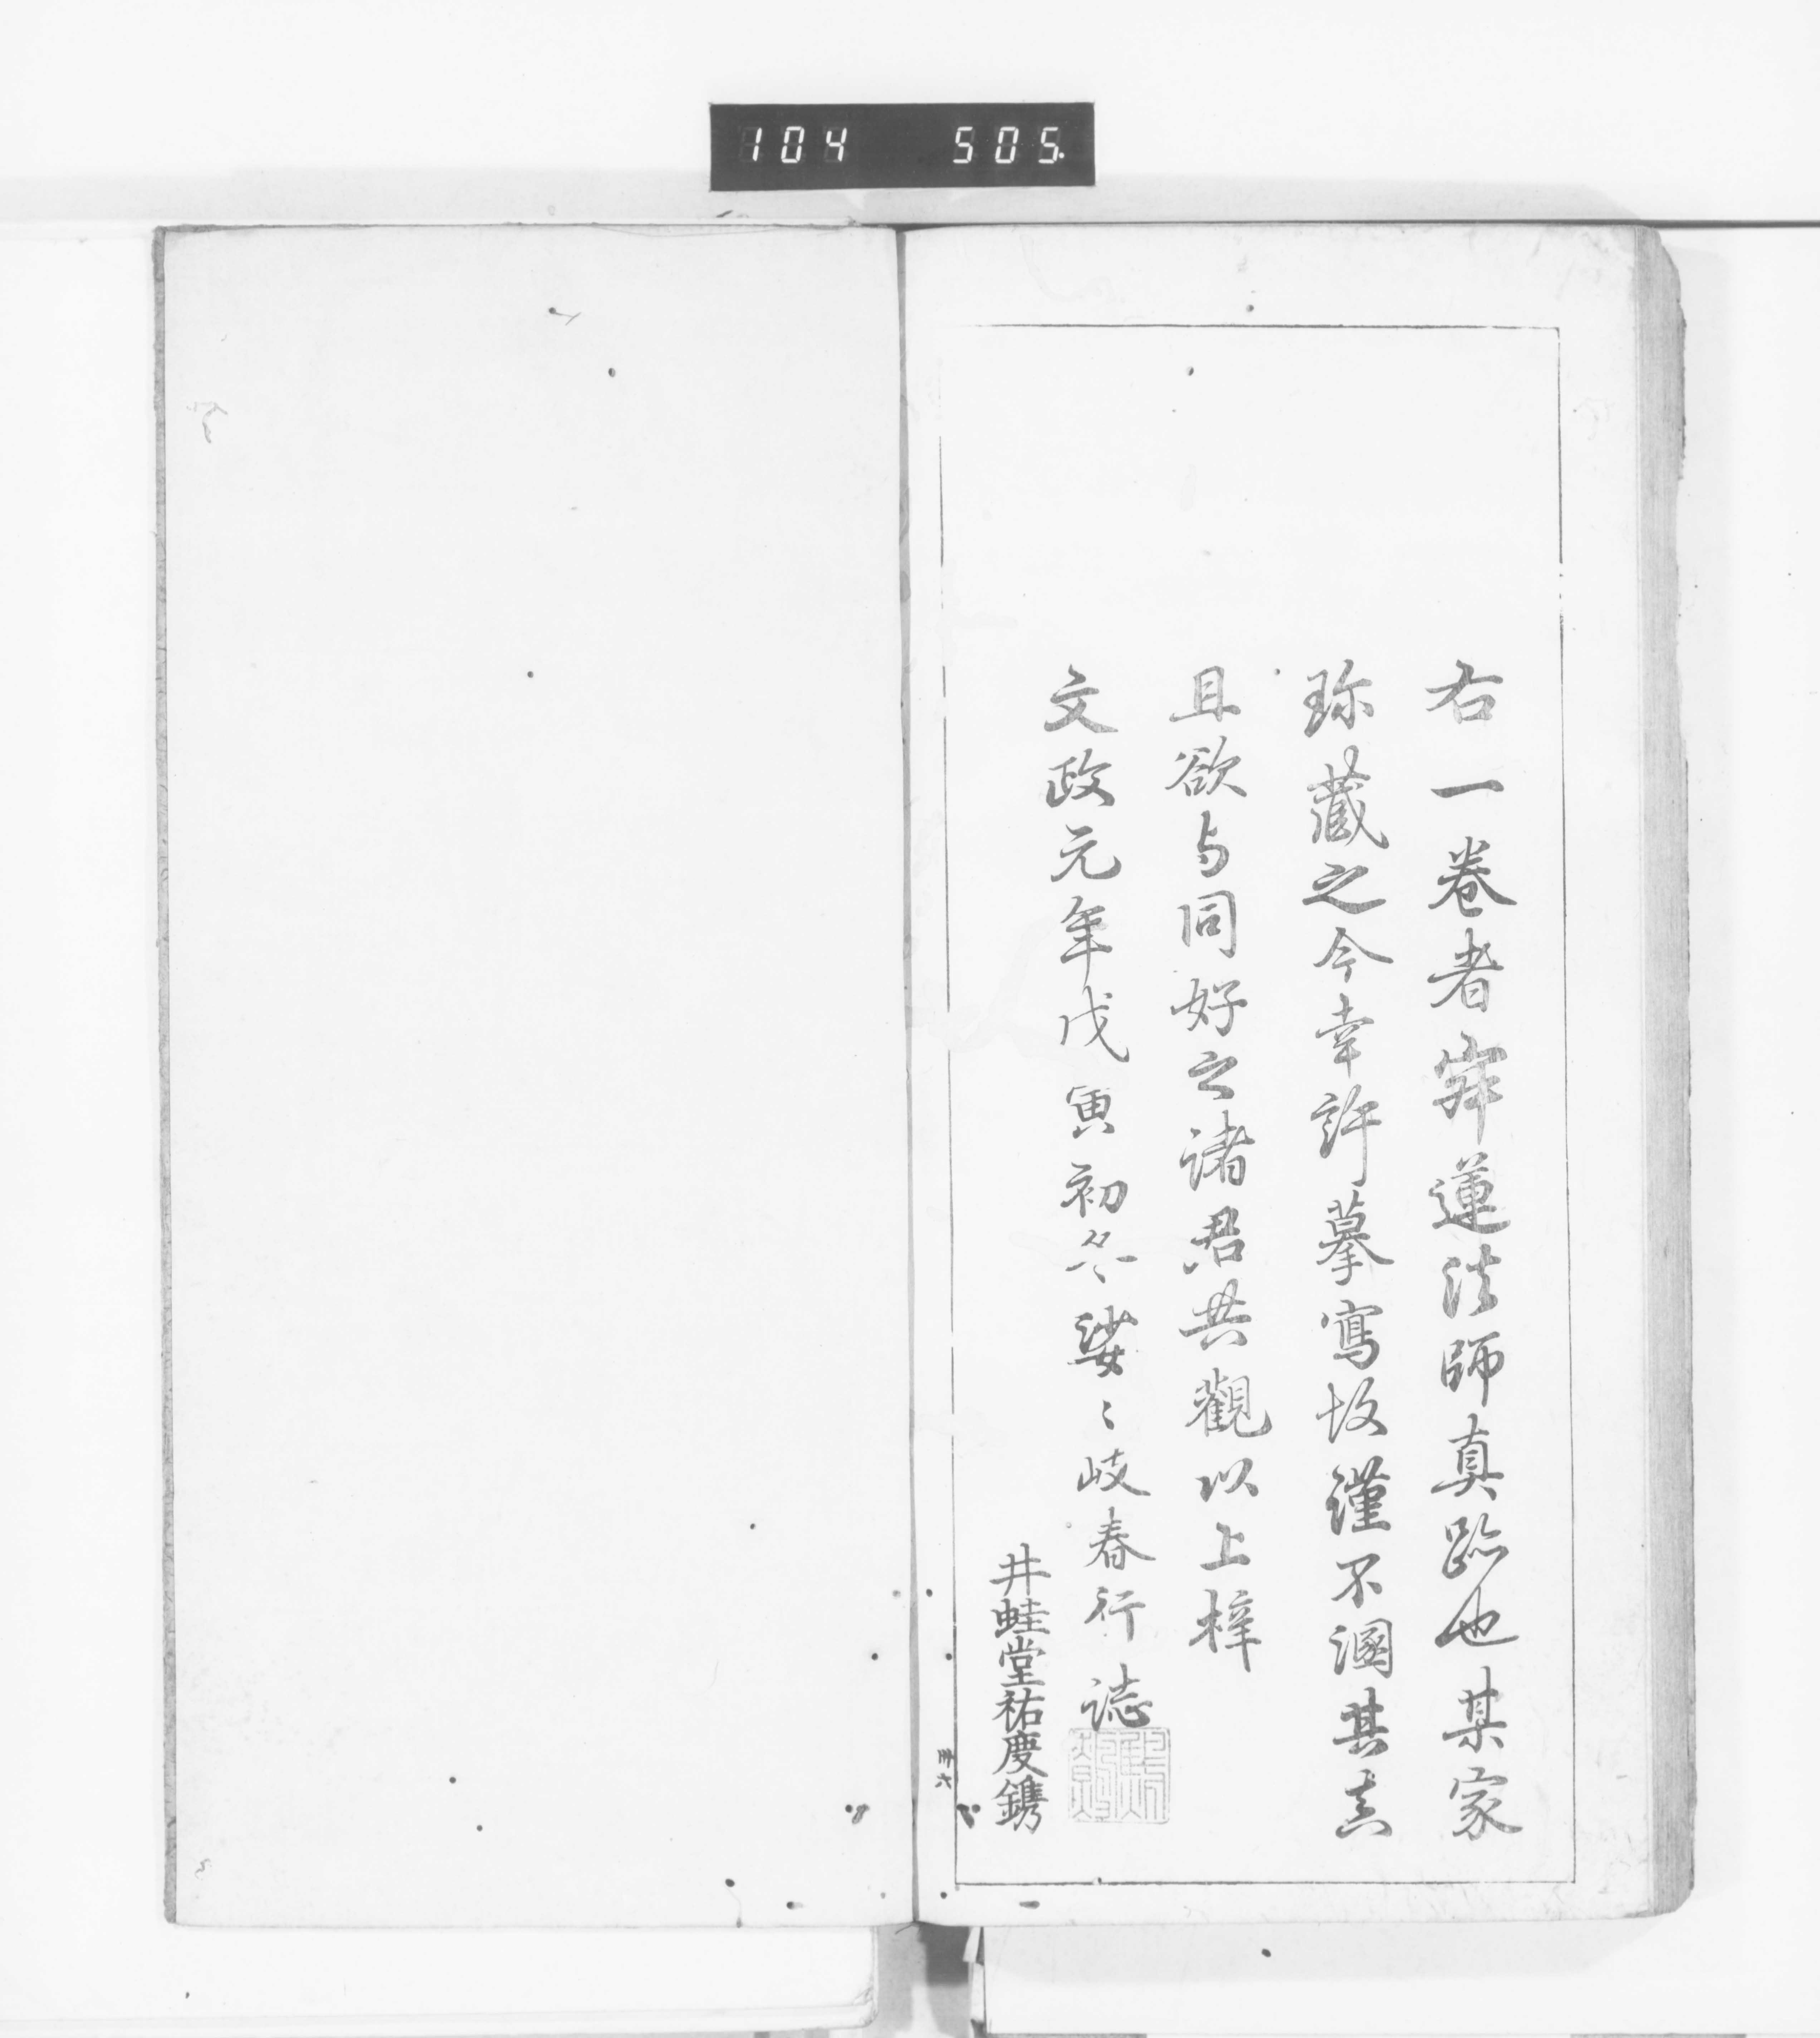 104 505.
右一卷者寂蓮法師真跡也某家
珎藏之今幸許摹寫故謹不溷其真
且欲与同好之諸君共觀以上梓
文政元年戊寅初冬娑〻岐春行誌
井蛙堂祐慶鐫
卅六